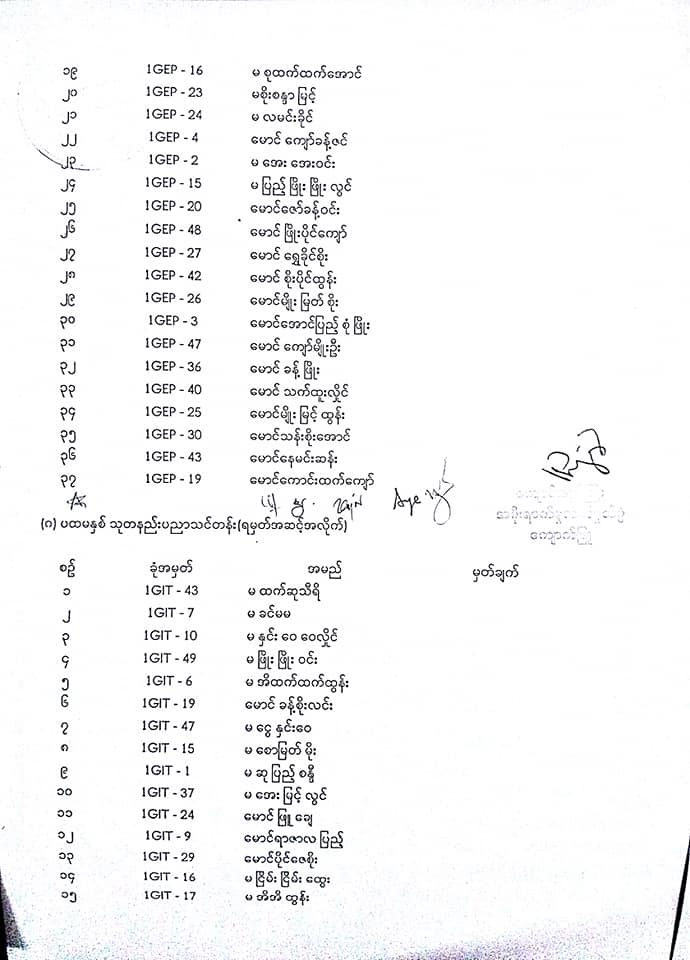 ၁၉ 1GEP - 16 မ စုထက်ထက်အောင်
၂၀ 1GEP - 23 မစိုးစန္ဒာမြင့်
၂၁ 1GEP - 24 မ လမင်းခိုင်
၂၂ 1GEP - 4 မောင် ကျော်ခန့်ဇင်
၂၃ 1GEP - 2 မ အေး အေးဝင်း
၂၄ 1GEP - 15 မ ပြည့် ဖြိုး ဖြိုး လွင်
၂၅ 1GEP - 20 မောင်ဇော်ခန့်ဝင်း
၂၆ 1GEP - 48 မောင် ဖြိုးပိုင်ကျော်
၂၇ 1GEP - 27 မောင် ရွှေခိုင်စိုး
၂၈ 1GEP - 42 မောင် စိုးပိုင်ထွန်း
၂၉ 1GEP - 26 မောင်မျိုး မြတ် စိုး
၃၀ 1GEP - 3 မောင်အောင်ပြည့် စုံ ဖြိုး
၃၁ 1GEP - 47 မောင် ကျော်မျိုးဦး
၃၂ 1GEP - 36 မောင် ခန့် ဖြိုး
၃၃ 1GEP - 40 မောင် သက်ထူးလှိုင်
၃၄ 1GEP - 25 မောင်မျိုး မြင့် ထွန်း
၃၅ 1GEP - 30 မောင်သန်းစိုးအောင်
၃၆ 1GEP - 43 မောင်နေမင်းဆန်း
၃၇ 1GEP - 19 မောင်ကောင်းထက်ကျော်
Aye
ကျောက်ဖြူ
(ဂ) ပထမနှစ် သုတနည်းပညာသင်တန်း(ရမှတ်အဆင့်အလိုက်)
စဉ် ခုံအမှတ် အမည် မှတ်ချက်
၁ 1GIT - 43 မ ထက်ဆုသီရိ
၂ 1GIT - 7 မ ခင်မမ
၃ 1GIT - 10 မ နှင်း ဝေ ဝေလှိုင်
၄ 1GIT - 49 မ ဖြိုး ဖြိုး ဝင်း
၅ 1GIT - 6 မ အိထက်ထက်ထွန်း
၆ 1GIT - 19 မောင် ခန့်စိုးလင်း
၇ 1GIT - 47 မ ငွေ နှင်းဝေ
၈ 1GIT - 15 မ စောမြတ် မိုး
၉ 1GIT - 1 မ ဆု ပြည့် စန္ဒီ
၁၀ 1GIT - 37 မ အေး မြင့် လွင်
၁၁ 1GIT - 24 မောင် ဖြူ ချေ
၁၂ 1GIT - 9 မောင်ရာဇာလ ပြည့်
၁၃ 1GIT - 29 မောင်ပိုင်ဇေစိုး
၁၄ 1GIT - 16 မ ငြိမ်း ငြိမ်း ထွေး
၁၅ 1GIT - 17 မ အိအိ ထွန်း